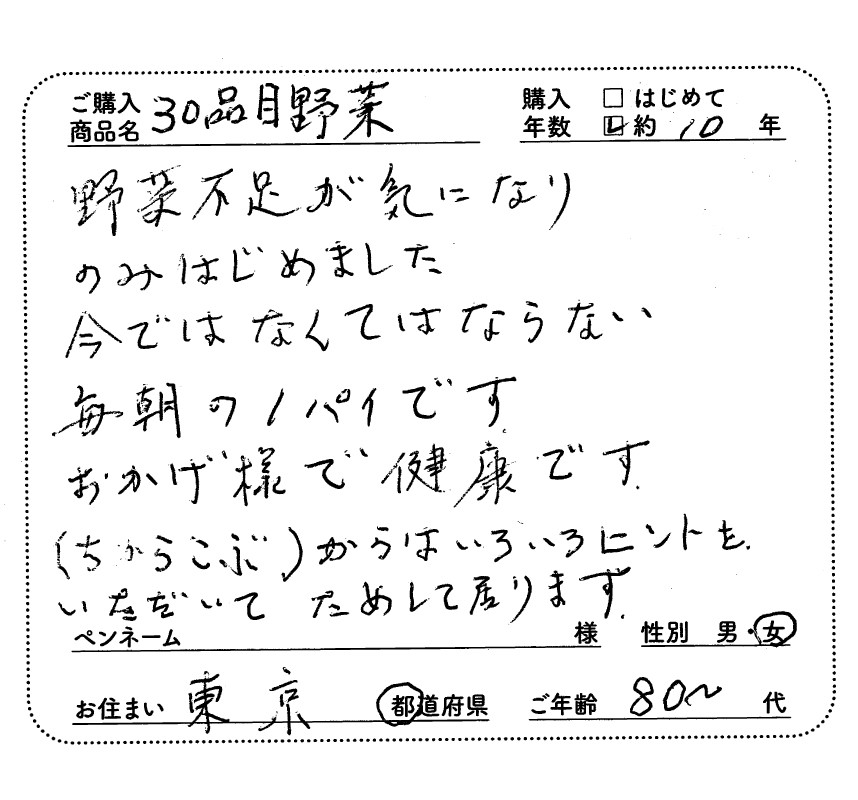 ご購入商品名 30品目野菜 購入年数 □ はじめて
☑ 約 10 年
野菜不足が気になり
のみはじめました
今ではなくてはならない
毎朝の1パイです
おかげ様で健康です
(ちからこぶ)からはいろいろヒントを
いただいて ためして居ります
ペンネーム 様 性別 男・女
お住まい 東京 都道府県 ご年齢 80〜 代